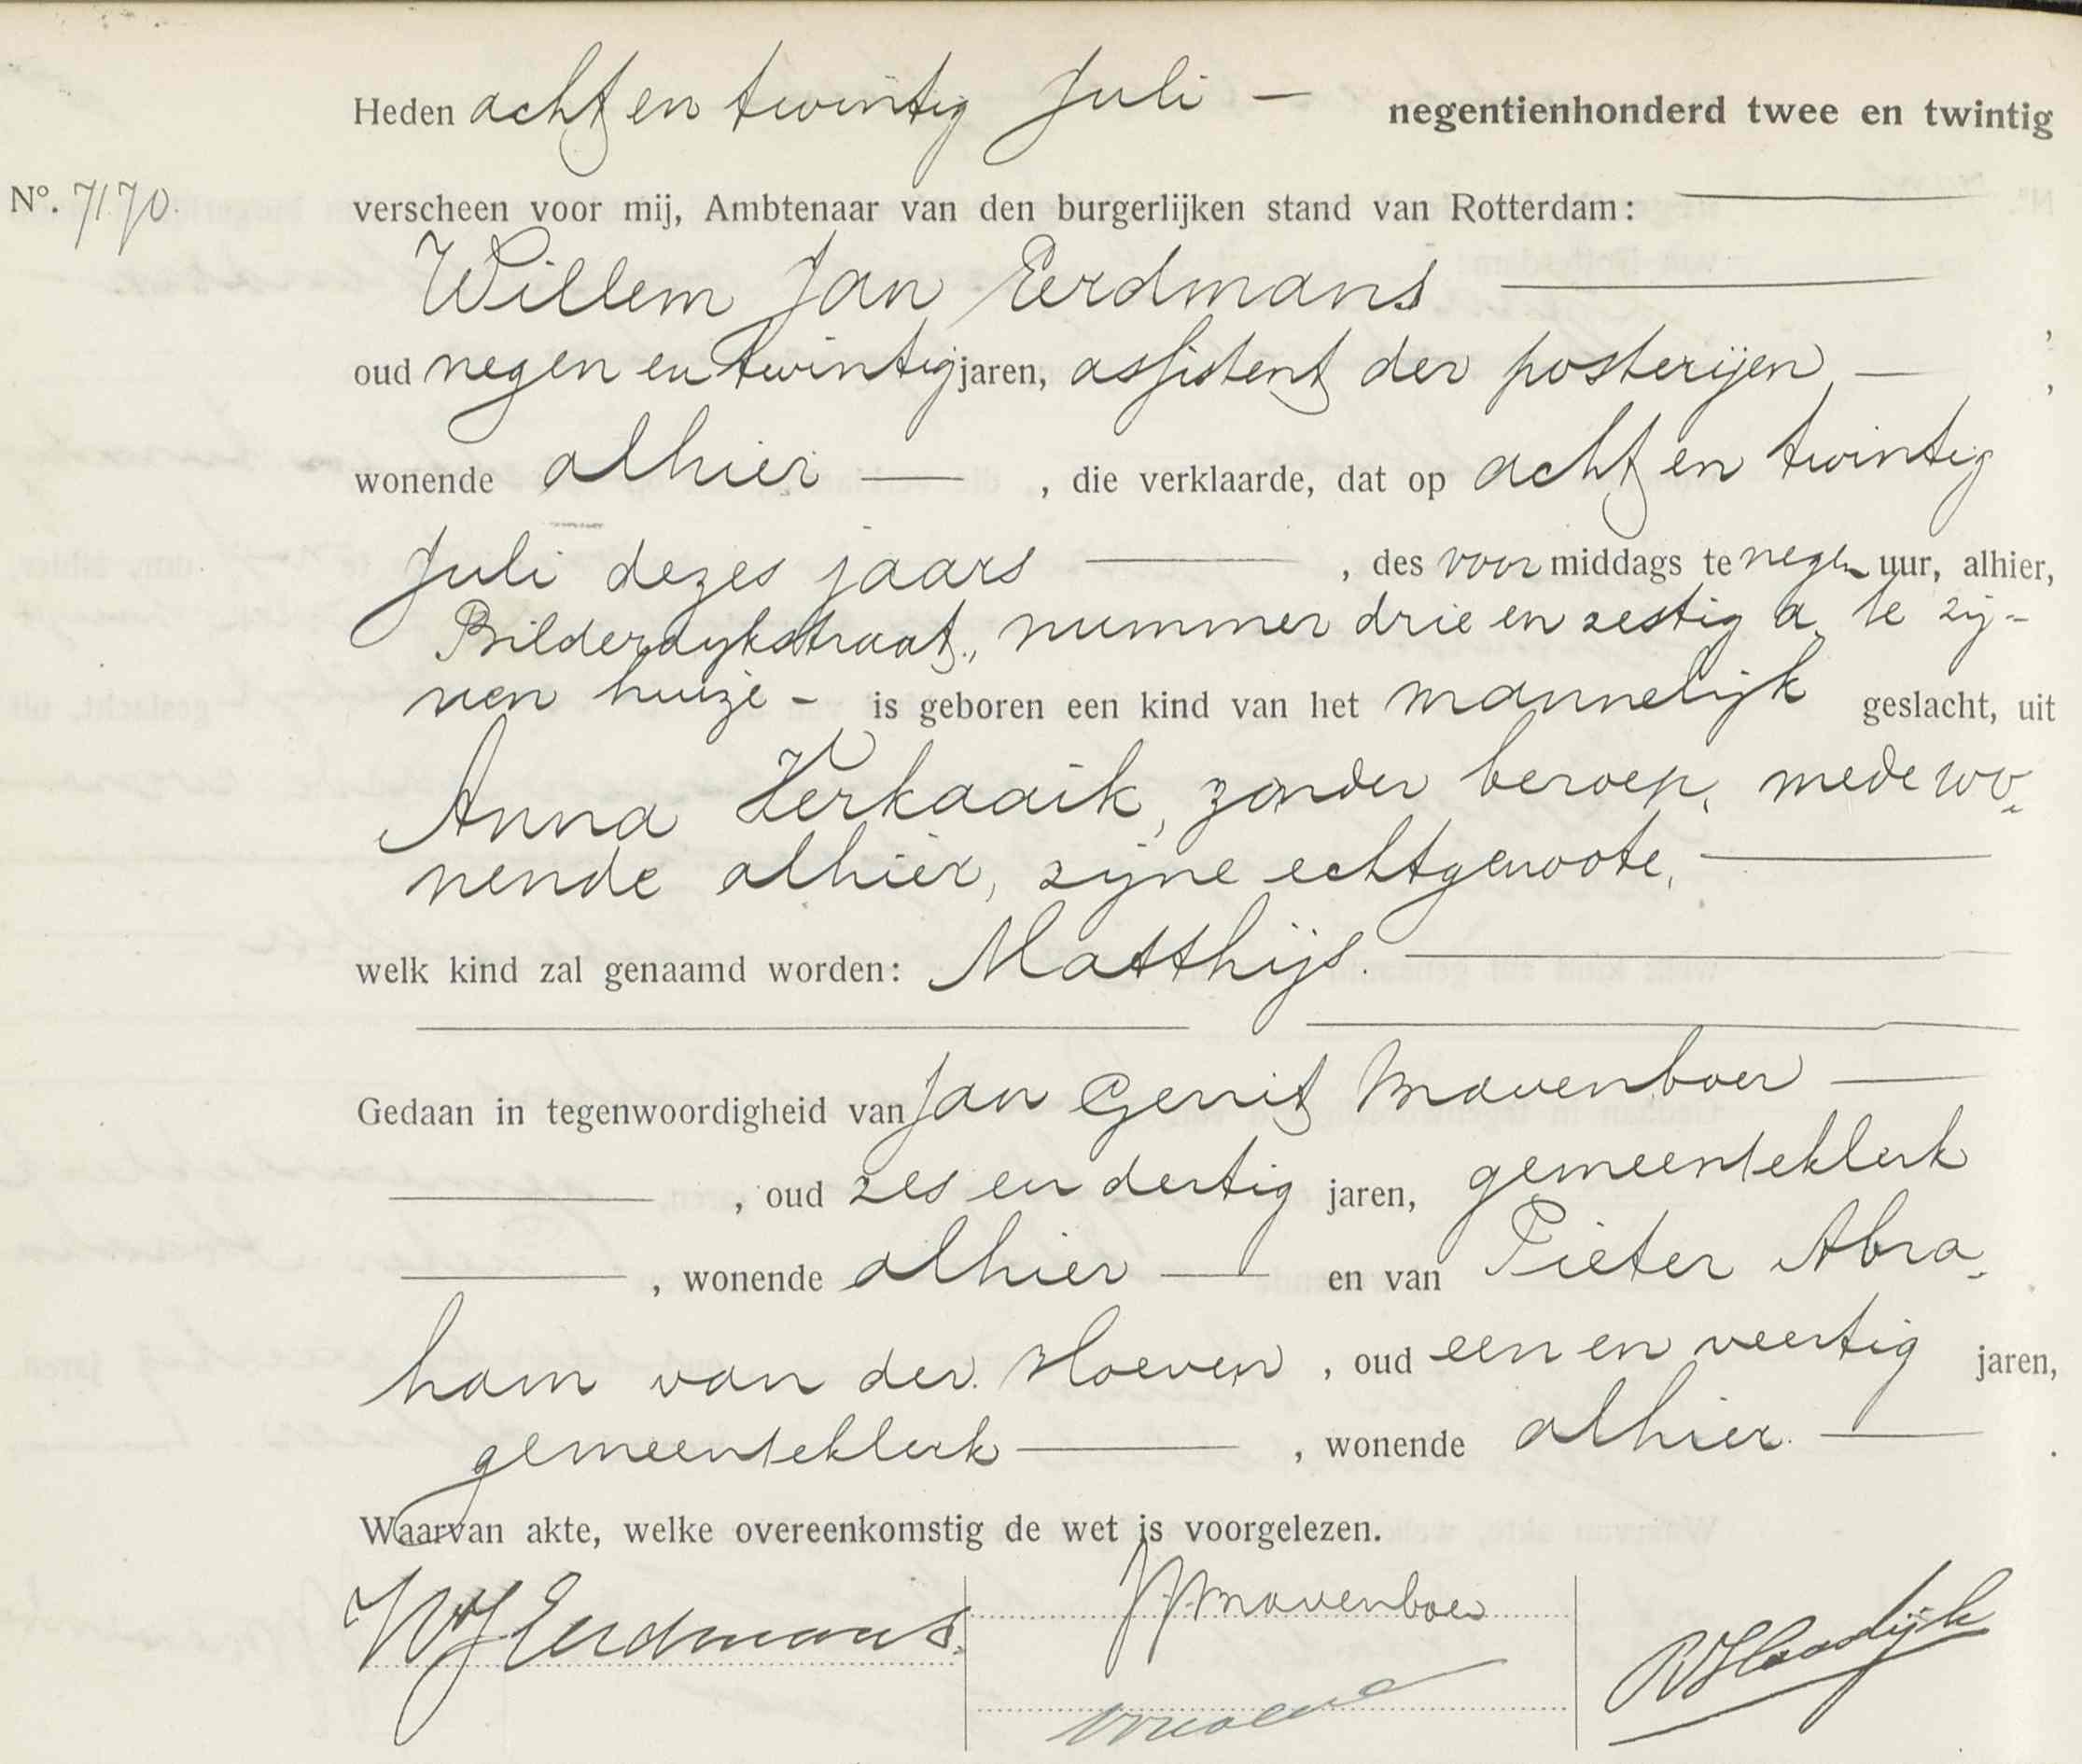 Heden acht en twintig Juli — negentienhonderd twee en twintig
N°. 7170. verscheen voor mij, Ambtenaar van den burgerlijken stand van Rotterdam: —
Willem Jan Eerdmans — ,
oud negen en twintig jaren, assistent der posterijen, — ,
wonende alhier — , die verklaarde, dat op acht en twintig
Juli dezes jaars — , des voormiddags te negen uur, alhier,
Bilderdykstraat, nummer drie en zestig a, te zij-
nen huize - is geboren een kind van het mannelijk geslacht, uit
Anna Kerkaaik, zonder beroep, mede wo-
nende alhier, zijne echtgenoote, —
welk kind zal genaamd worden: Matthijs. —
Gedaan in tegenwoordigheid van Jan Gerrit Mauenboer —
— , oud zes en dertig jaren, gemeenteklerk
— , wonende alhier — en van Pieter Abra-
ham van der Hoeven , oud een en veertig jaren,
gemeenteklerk — , wonende alhier. — .
Waarvan akte, welke overeenkomstig de wet is voorgelezen.
WJ Eerdmans. Mauenboer